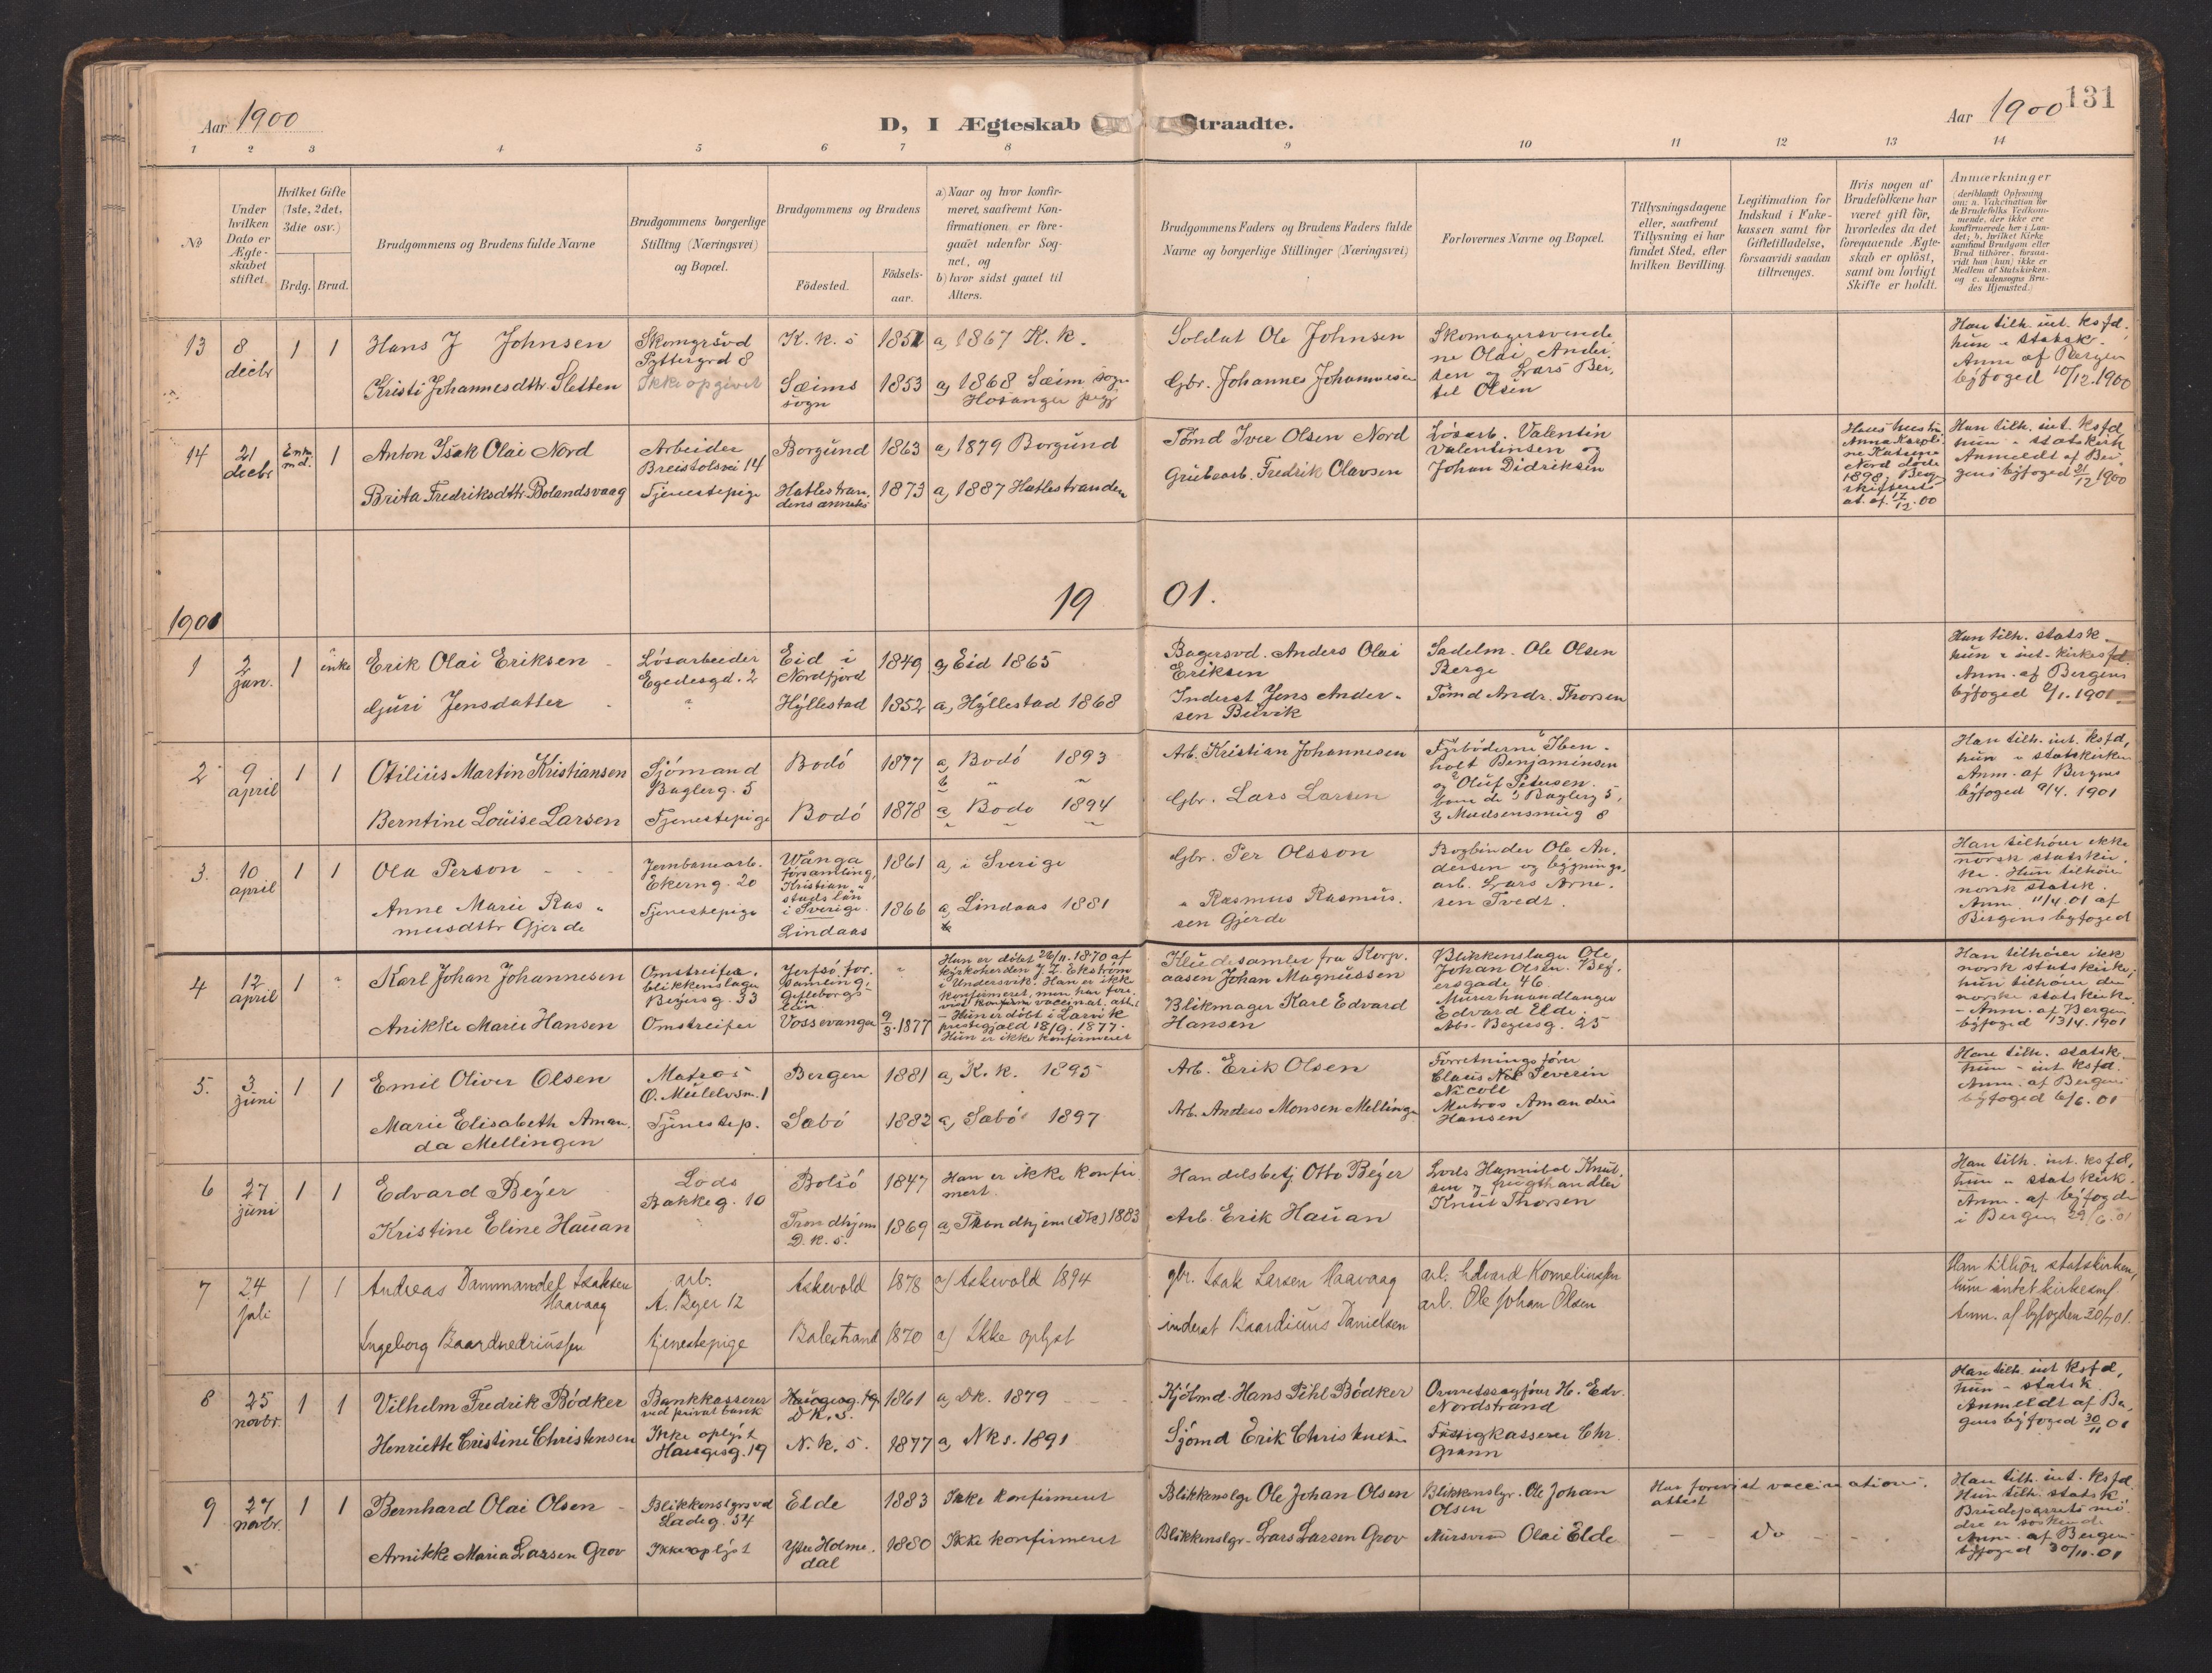 Aar 1900
D, I Ægteskab
traadte.
Aar 1900
131
1 2 3 4 5 6 7 8 9 10 11 12 13 14
No
Under hvilken Dato er Ægteskabet stiftet.
Hvilket Gifte (1ste, 2det, 3die osv.)
Brdg. Brud.
Brudgommens og Brudens fulde Navne
Brudgommens borgerlige Stilling (Næringsvei) og Bopæl.
Brudgommens og Brudens
Fødested.
Fødselsaar.
a) Naar og hvor konfirmeret, saafremt Konfirmationen er foregaaet udenfor Sognet, og
b) hvor sidst gaaet til Alters.
Brudgommens Faders og Brudens Faders fulde Navne og borgerlige Stillinger (Næringsvei)
Forlovernes Navne og Bopæl.
Tillysningsdagene eller, saafremt Tillysning ei har fundet Sted, efter hvilken Bevilling.
Legitimation for Indskud i Enkekassen samt for Giftetilladelse, forsaavidt saadan tiltrænges.
Hvis nogen af Brudefolkene har været gift før, hvorledes da det foregaaende Ægteskab er opløst, samt om lovligt Skifte er holdt.
Anmærkninger
(deriblandt Oplysning om: a. Vakcination for de Brudefolks Vedkommende, der ikke ere konfirmerede her i Landet; b. hvilket Kirkesamfund Brudgom eller Brud tilhører, forsaavidt han (hun) ikke er Medlem af Statskirken, og c. udensogns Brudes Hjemsted.)
13 8 decbr 1 1
Hans J Johnsen
Skomgrsvd Pyttergrd 8
K. k. s 1851 a, 1867 K. k.
Soldat Ole Johnsen
Skomagersvendene Olai Andersen og Lars Bertil Olsen
Han tilh. int. ksfd. hun " statsk. Anm af Bergen byfoged 10/12.1900
Kristi Johannesdtr. Sletten
Ikke opgivet
Sæims sogn 1853 a, 1868 Sæim sogn Hosanger pgj
Gbr. Johannes Johannesen
14 21 decbr Enkemd. 1
Anton Isak Olai Nord
Arbeider Breistølsvei 14
Borgund 1863 a, 1879 Borgund
Tømd Iver Olsen Nord
Løsarb. Valentin Valentinsen og Johan Didriksen
Hans hustru Anna Karoline Katrine Nord døde 1898, Berg. skifterets at. af. 17/12.00
Han tilh. int. ksfd hun " statskirk Anmeldt af Bergens byfoged 21/12 1900
Brita Fredriksdtr Bolandsvaag
Tjenestepige
Hatlestrandens anneks 1873 a, 1887 Hatlestranden
Grubearb. Fredrik Olavsen
1901
19 01.
1 2 jan. 1 enke
Erik Olai Eriksen
Løsarbeider Egedesgd. 2
Eid i Nordfjord 1849 a, Eid 1865
Bagersvd. Anders Olai Eriksen
Sadelm. Ole Olsen Berge
Han tilh. statsk. hun " int. kirkesfd. Anm. af Bergens byfoged 2/1.1901
Guri Jensdatter
"
Hyllestad 1852 a, Hyllestad 1868
Inderst Jens Andersen Buvik
Tømd Andr. Thorsen
2 9 april 1 1
Otilius Martin Kristiansen
Sjømand Baglerg. 5
Bodø 1877 a, Bodø 1893
b " "
Arb. Kristian Johannesen
Fyrbøderne Ibenholt Benjaminsen og Oluf Petersen. 5, 3 Madsensmug 8
Han tilh. int. ksfd, hun " statskirken Anm. af Bergens byfoged 9/4. 1901
Berntine Louise Larsen
Tjenestepige
Bodø 1878 a, Bodø 1894
" " "
Gbr. Lars Larsen
3. 10 april 1 1
Ola Person
Jernbanearb. Ekerng. 20
Wånga församling, Kristianstads län i Sverige. 1861 a, i Sverige
Gbr. Per Olsson
Bogbinder Ole Andersen og bygningsarb. Lars Arnesen Tvedt.
Han tilhører ikke norsk statskirke. Hun tilhører norsk statsk. Anm. 11/4.01 af Bergens byfoged
Anne Marie Rasmusdtr Gjerde
Tjenestepige
Lindaas 1866 a, Lindaas 1881
" Rasmus Rasmussen Gjerde
4 12 april 1 "
Karl Johan Johannesen
Omstreifer, blikkenslager Beyersg. 33
Jerfsö församling, Gefleborgs län "
Han er døbt 26/11.1870 af kyrkoherden J. Z. Ekström i Undersvik. Han er ikke konfirmeret, men har forevist vaccinat. attest
Kludesamler fra Korp. aasen Johan Magnussen
Blikkenslager Ole Johan Olsen. Beyersgade 46.
Murerhaandlanger Edvard Elde. Abs. Beyersg. 25
Han tilhører ikke norsk statskirke; hun tilhører den norske statskirke. - Anm. af Bergen byfoged 13/4. 1901
Anikke Marie Hansen
Omstreifer
Vossevangen 9/3.1877
- Hun er døbt i Larvik prestegjæld 18/9. 1877. Hun er ikke konfirmeret
Blikmager Karl Edvard Hansen
5. 3 juni 1 1
Emil Oliver Olsen
Matros Ø. Mulelvsm. 1
Bergen 1881 a, K. k. 1895
Arb. Erik Olsen
Forretningsfører Claus Nik Severin Nicoll
Matros Amandus Hansen
Han tilh. statsk. hun - int ksfd. Anm. af Bergens byfoged 6/6. 01
Marie Elisabeth Amanda Mellingen
Tjenestep.
Sæbø 1882 a, Sæbø 1897
Arb. Anders Monsen Mellingen
6 27 juni 1 1
Edvard Beyer
Lods Bakkeg. 10
Bolsø 1847 Han er ikke konfirmert.
Handelsbetj Otto Beyer
Lods Hannibal Knutsen og frugthandler Knut Thorsen
Han tilh. int. ksfd, hun " statskirk. Anm. af byfogden i Bergen 29/6.01
Kristine Eline Hauan
Trondhjem D. k. s. 1869 a, Trondhjem (Dk) 1883
Arb. Erik Hauan
7 24 juli 1 1
Andreas Dammandel Isaksen Haavaag
arb. A. Beyer 12
Askevold 1878 a) Askevold 1894
gbr. Isak Larsen Haavaag
arb. Edvard Korneliussen
arb. Ole Johan Olsen
Han tilhør. statskirken, hun intet kirkesmf Anm. af byfogden 30/7 01.
Ingeborg Baardnedriussen
tjenestepige
Balestrand 1870 a) Ikke oplyst
inderst Baardinus Danielsen
8 25 novbr. 1 1
Vilhelm Fredrik Bødker
Bankkasserer ved privat bank
Haugesg. 19 DK. s. 1861 a, Dk. 1879
Kjølmd. Hans Pihl Bødker
Overretssagfører H. Edv. Nordstrand
Han tilh. int ksfd, hun - statsk. Anmeldt af Bergens byfoged 30/11 01
Henriette Cristine Christensen
Ikke oplyst Haugesg. 19
N. k. s. 1877 a, Nks. 1891
Sjømd Erik Christensen
Fattigkasserer Chr. Grann
9 27 novbr. 1 1
Bernhard Olai Olsen
Blikkenslgrsvd Ladeg. 54
Elde 1883 Ikke konfirmeret
Blikkenslgr Ole Johan Olsen
Blikkenslgr. Ole Johan Olsen
Har forevist vaccinations. attest
Han tilh. int. ksfd. Hun tilh. statsk Brudeparrets mødre er søskende Anm. af Bergens byfoged 30/11.01
Arnikke Maria Larsen Grov
Ikke oplyst
Ytre Holmedal 1880 Ikke konfirmeret
Blikkenslgr. Lars Larsen Grov
Olai Elde
- - do - -